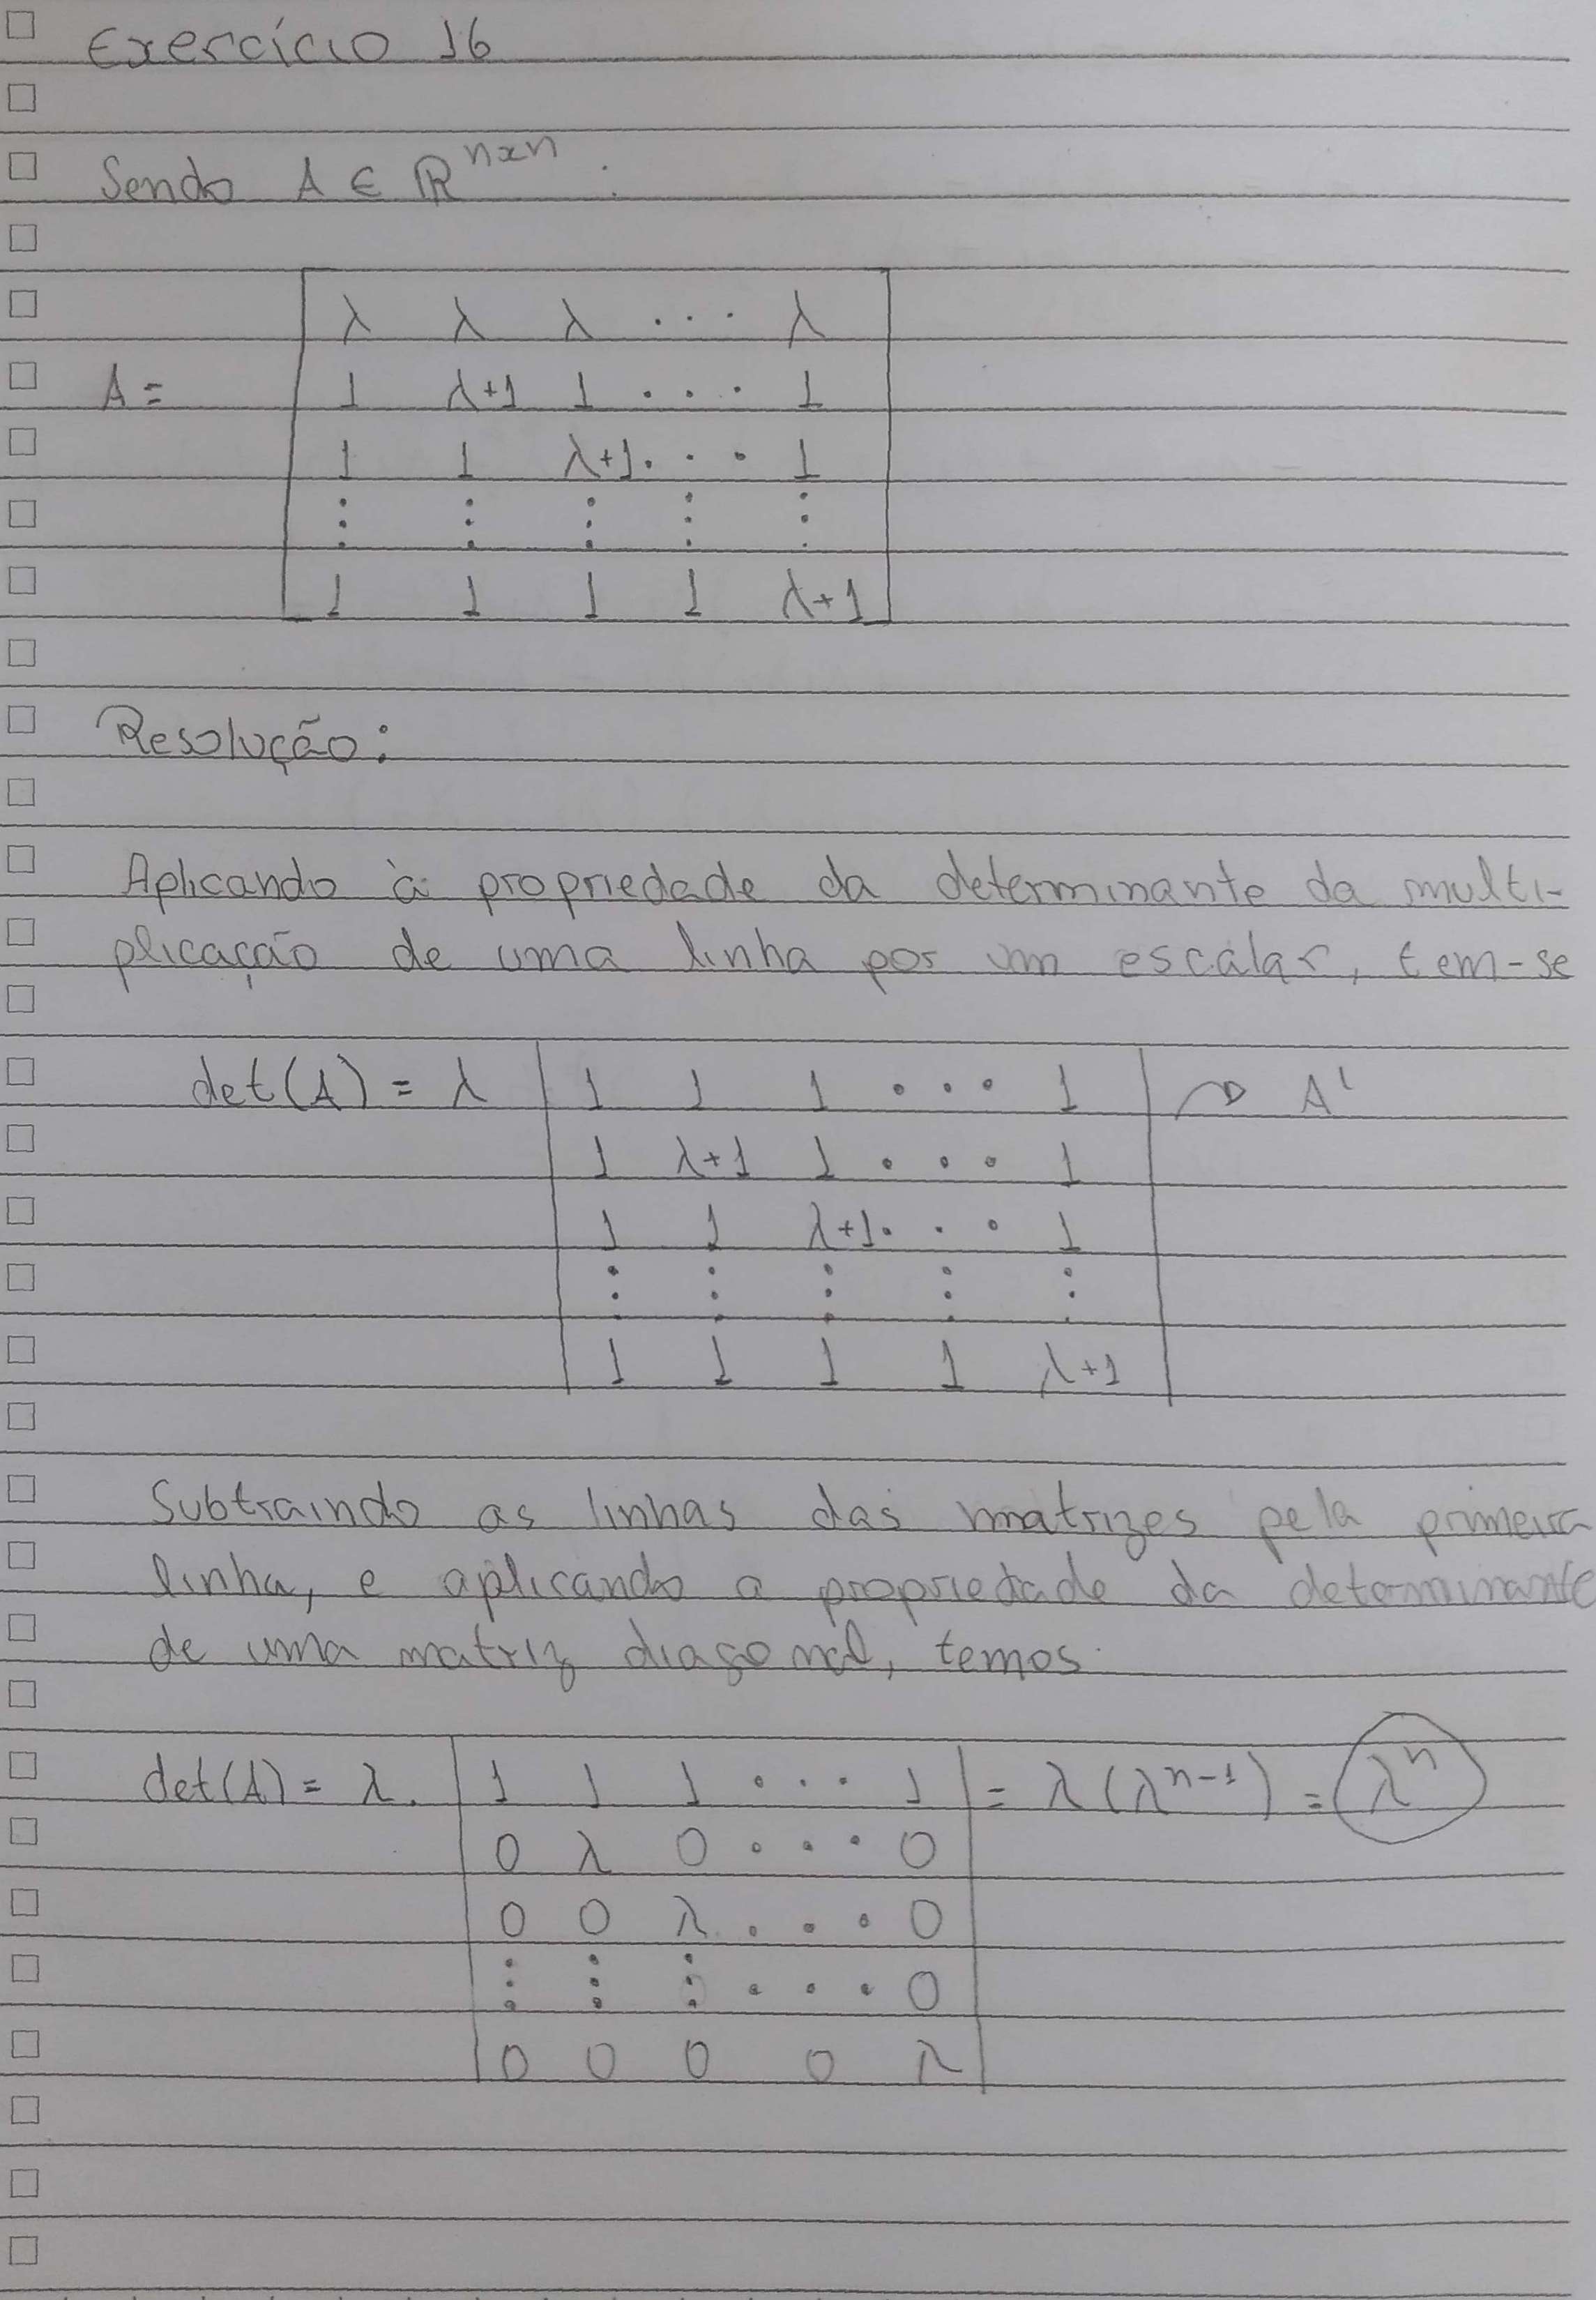 Exercício 16
Sendo A ∈ ℝ^{n×n} :
λ λ λ ... λ
A = 1 λ+1 1 ... 1
1 1 λ+1 ... 1
⋮ ⋮ ⋮ ⋮ ⋮
1 1 1 1 λ+1
Resolução:
Aplicando à propriedade da determinante da multi-
plicação de uma linha por um escalar, tem-se
det(A) = λ | 1 1 1 ... 1 | → A'
1 λ+1 1 ... 1
1 1 λ+1 ... 1
⋮ ⋮ ⋮ ⋮ ⋮
1 1 1 1 λ+1
Subtraindo as linhas das matrizes pela primeira
linha, e aplicando a propriedade da determinante
de uma matriz diagonal, temos.
det(A) = λ. | 1 1 1 ... 1 | = λ(λ^{n-1}) = λ^n
0 λ 0 ... 0
0 0 λ ... 0
⋮ ⋮ ⋮ ... 0
0 0 0 0 λ